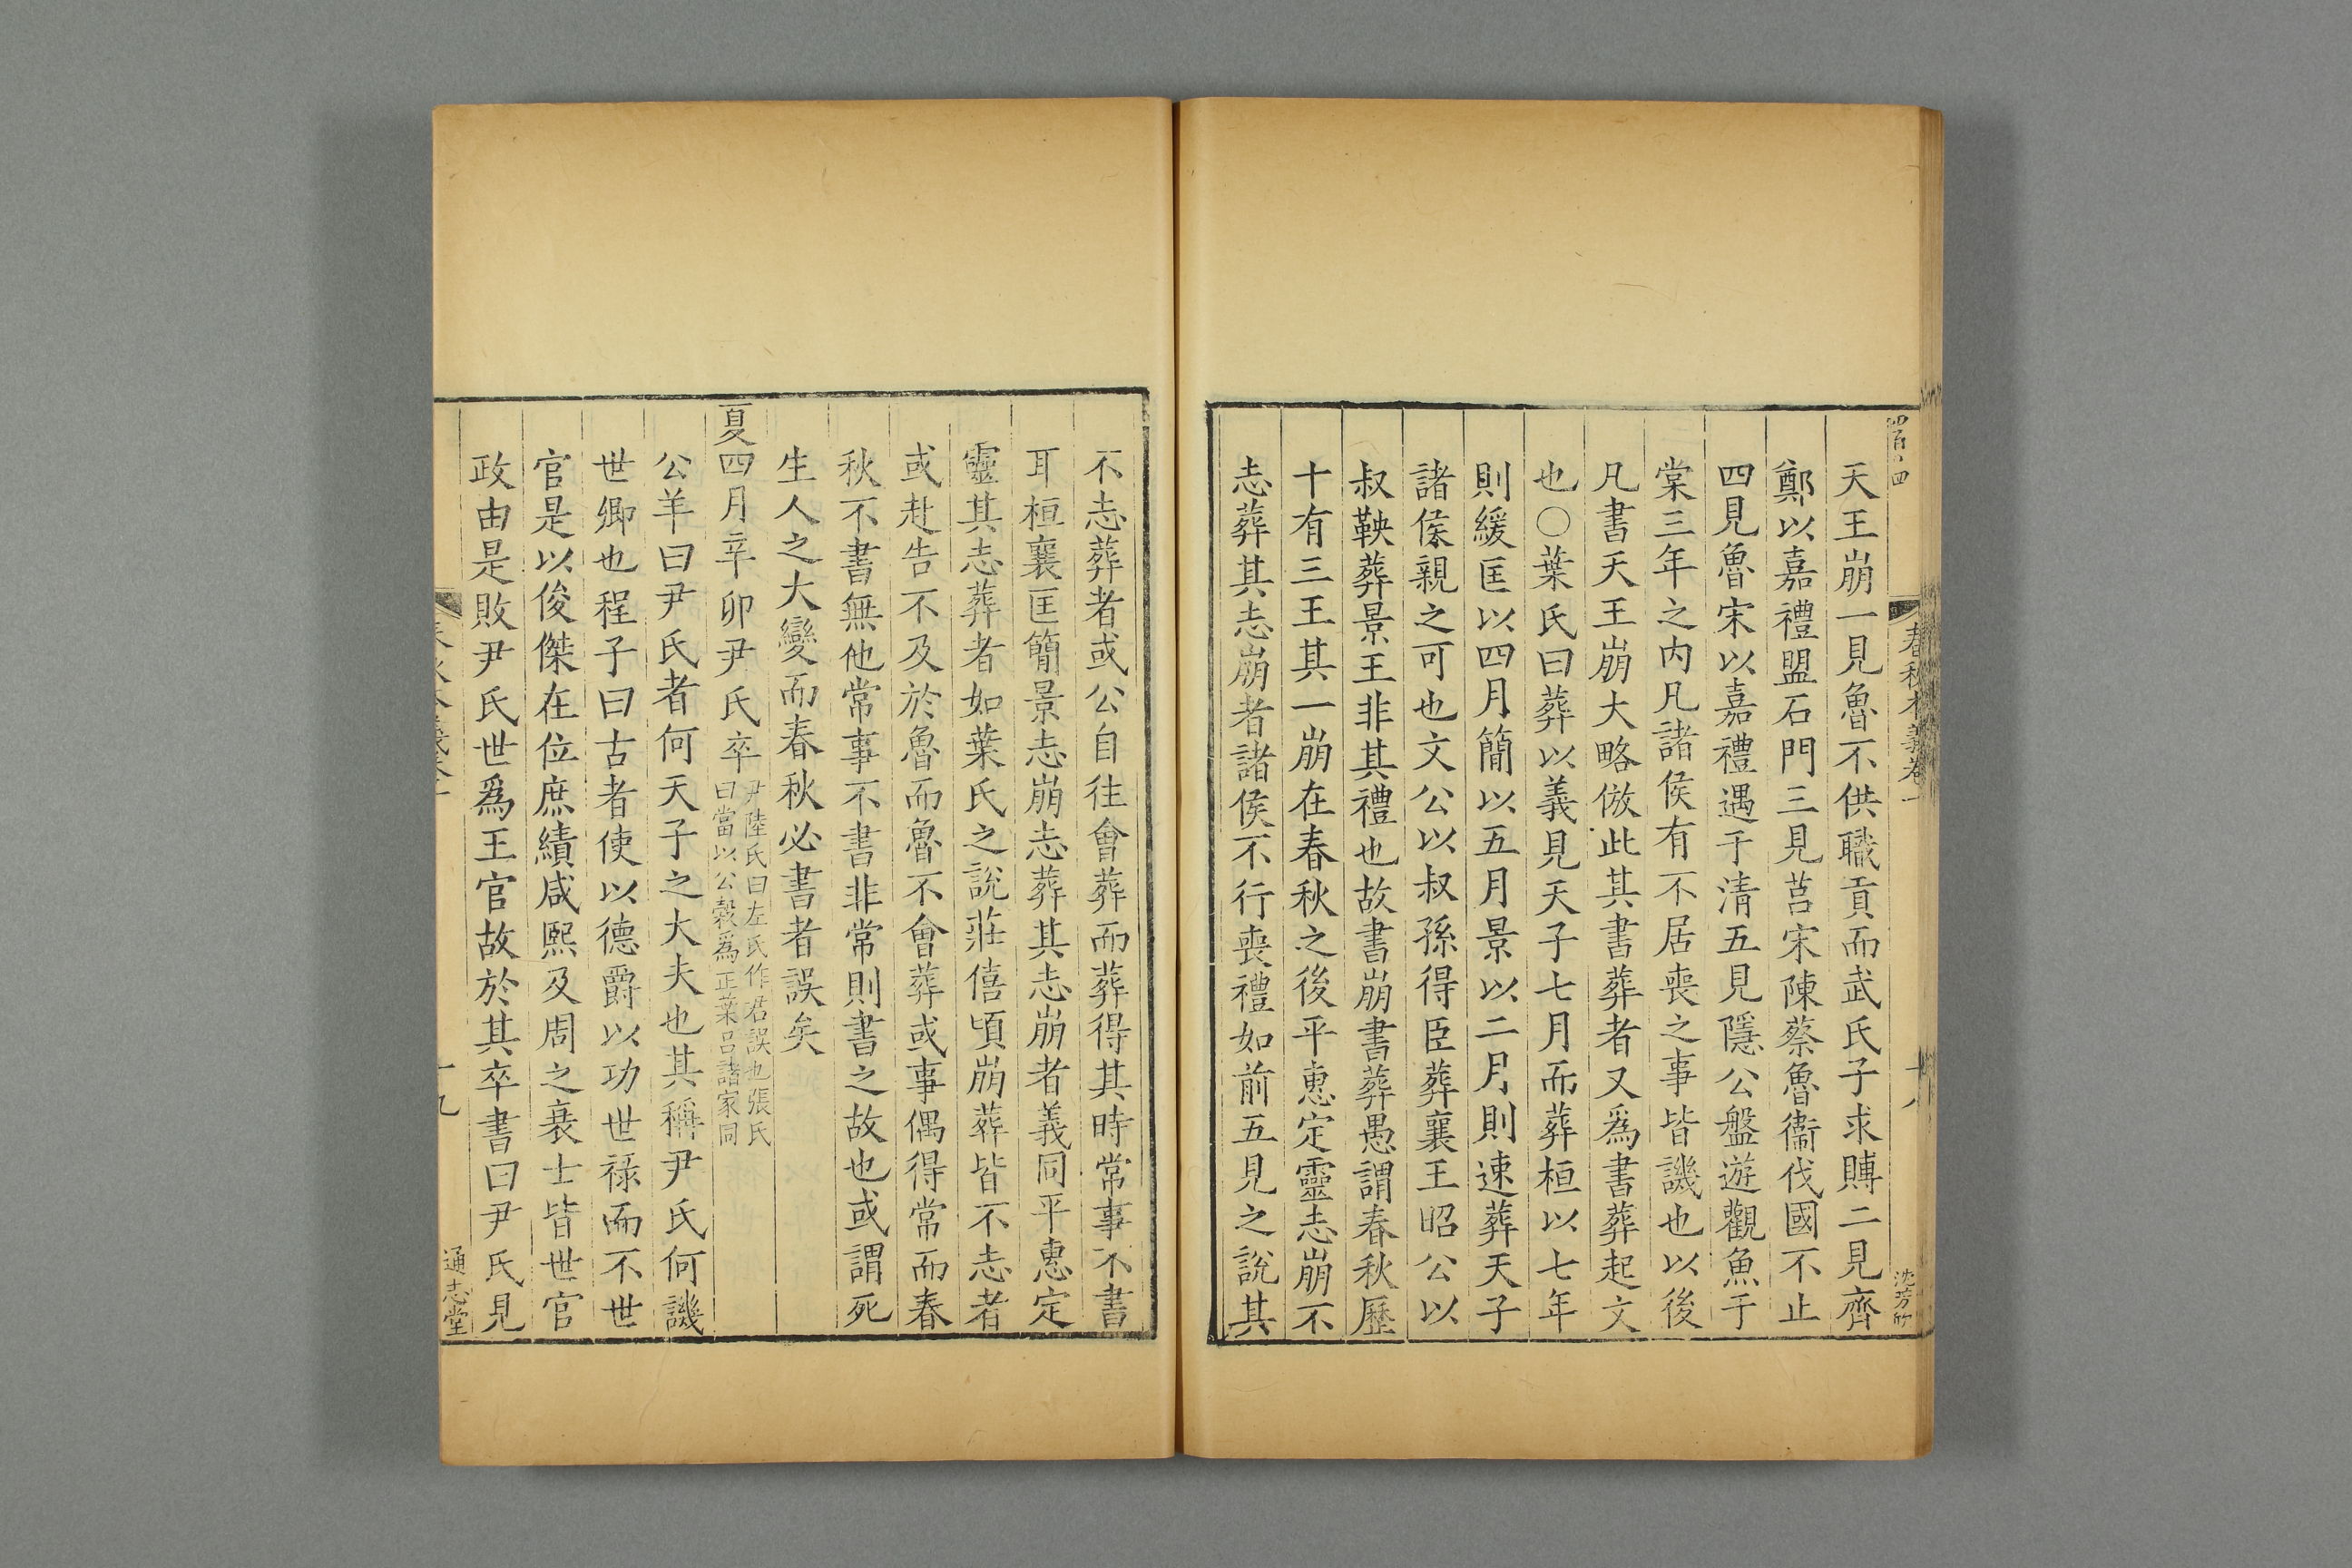 春秋本義卷一
天王崩一見魯不供職貢而武氏子求賻二見齊
鄭以嘉禮盟石門三見莒宋陳蔡魯衞伐國不止
四見魯宋以嘉禮遇于清五見隱公盤遊觀魚于
棠三年之内凡諸侯有不居喪之事皆譏也以後
凡書天王崩大略倣此其書葬者又爲書葬起文
也○葉氏曰葬以義見天子七月而葬桓以七年
則緩匡以四月簡以五月景以二月則速葬天子
諸侯親之可也文公以叔孫得臣葬襄王昭公以
叔鞅葬景王非其禮也故書崩書葬愚謂春秋歷
十有三王其一崩在春秋之後平惠定靈志崩不
志葬其志崩者諸侯不行喪禮如前五見之說其
不志葬者或公自往會葬而葬得其時常事不書
耳桓襄匡簡景志崩志葬其志崩者義同平惠定
靈其志葬者如葉氏之說莊僖頃崩葬皆不志者
或赴告不及於魯而魯不會葬或事偶得常而春
秋不書無他常事不書非常則書之故也或謂死
生人之大變而春秋必書者誤矣
夏四月辛卯尹氏卒尹陸氏曰左氏作君誤也張氏
曰當以公穀爲正葉呂諸家同
公羊曰尹氏者何天子之大夫也其稱尹氏何譏
世卿也程子曰古者使以德爵以功世祿而不世
官是以俊傑在位庶績咸熙及周之衰士皆世官
政由是敗尹氏世爲王官故於其卒書曰尹氏見
通志堂